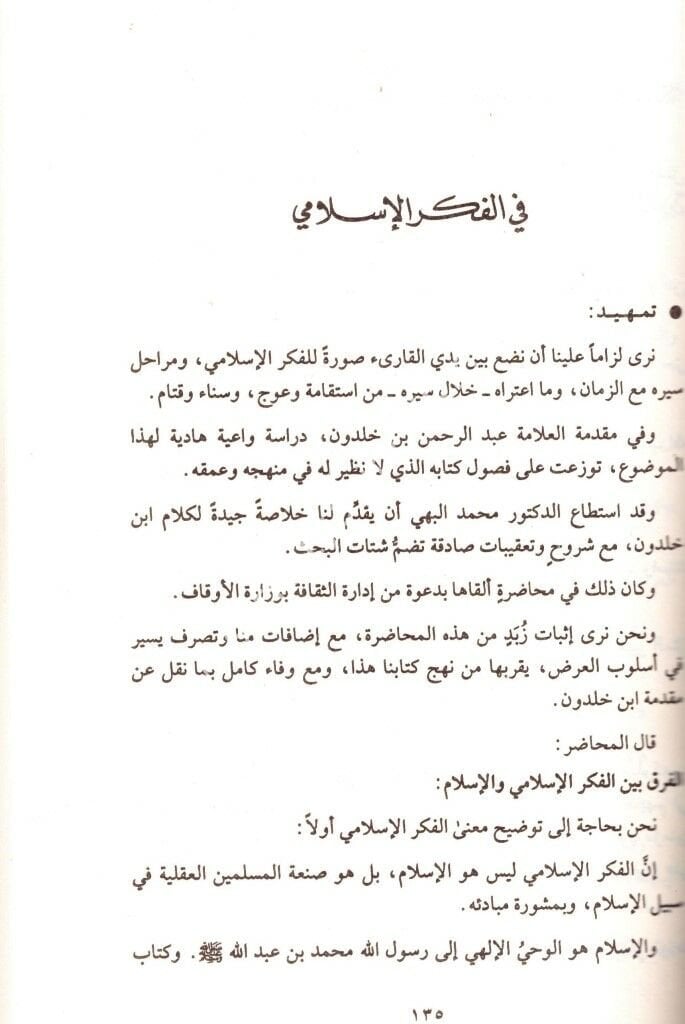 في الفكر الإسلامي
● تمهيد:
نرى لزاماً علينا أن نضع بين يدي القارىء صورةً للفكر الإسلامي، ومراحل
سيره مع الزمان، وما اعتراه ـ خلال سيره ـ من استقامة وعوج، وسناء وقتام.
وفي مقدمة العلامة عبد الرحمن بن خلدون، دراسة واعية هادية لهذا
الموضوع، توزعت على فصول كتابه الذي لا نظير له في منهجه وعمقه.
وقد استطاع الدكتور محمد البهي أن يقدِّم لنا خلاصةً جيدةً لكلام ابن
خلدون، مع شروحٍ وتعقيبات صادقة تضمُّ شتات البحث.
وكان ذلك في محاضرةٍ ألقاها بدعوة من إدارة الثقافة بوزارة الأوقاف.
ونحن نرى إثبات زُبَدٍ من هذه المحاضرة، مع إضافات منا وتصرف يسير
في أسلوب العرض، يقربها من نهج كتابنا هذا، ومع وفاء كامل بما نقل عن
مقدمة ابن خلدون.
قال المحاضر:
الفرق بين الفكر الإسلامي والإسلام:
نحن بحاجة إلى توضيح معنىٰ الفكر الإسلامي أولاً:
إنَّ الفكر الإسلامي ليس هو الإسلام، بل هو صنعة المسلمين العقلية في
سبيل الإسلام، وبمشورة مبادئه.
والإسلام هو الوحيُ الإلهي إلى رسول الله محمد بن عبد الله ﷺ. وكتاب
١٣٥